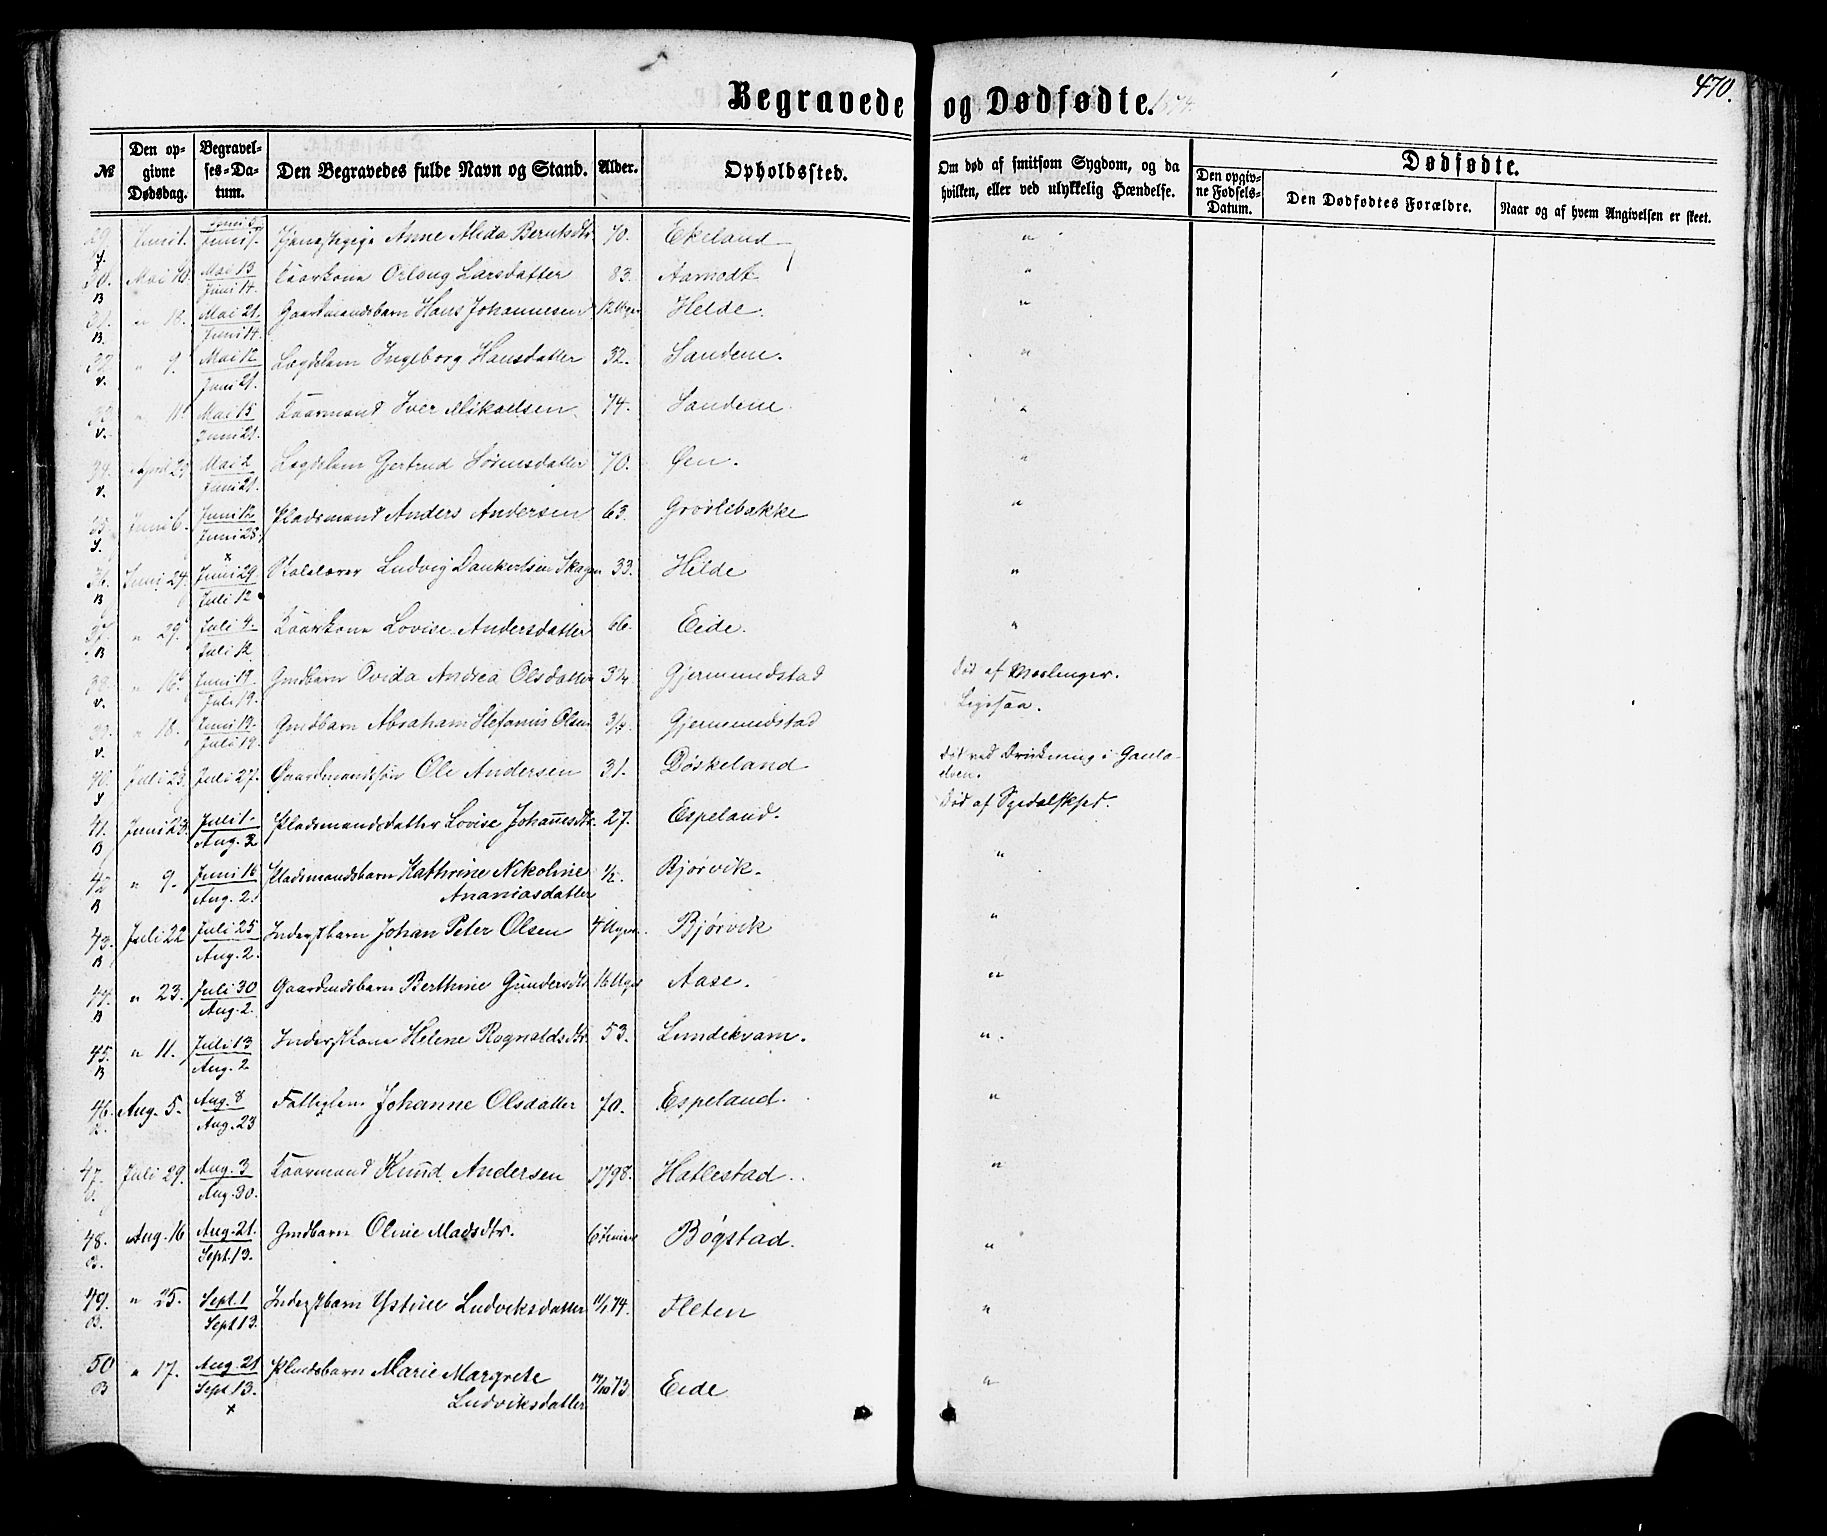 470.
Begravede og Dødfødte. 1874
№ Den opgivne Dødsdag. Begravelses-Datum. Den Begravedes fulde Navn og Stand. Alder. Opholdssted. Om død af smitsom Sygdom, og da hvilken, eller ved ulykkelig Hændelse. Dødfødte.
Den opgivne Fødsels-Datum. Den Dødfødtes Forældre. Naar og af hvem Angivelsen er skeet.
29. Juni 1. Juni 7. Anne Alida Berntsdtr 70. Ekeland "
30. B Mai 10. Mai 13 Juni 14. Kaarkone Larsdatter 83. Aarnodt "
31. B " 18. Mai 21. Juni 14. Gaardmandsbarn Hans Johannesen 12 Uger Helde. "
32. v. " 9. Mai 12 Juni 21. Lægdslem Ingeborg Hansdatter 32. Sandene. "
33. v. " 11. Mai 15 Juni 21. Kaarmand Iver Mikaelsen. 74. Sandene. "
34. v. April 29 Mai 2 Juni 21. Lægdslem Gjertrud Sørensdatter 70. Øen. "
35. Juni 6. Juni 12 Juni 28. Pladsmand Anders Andersen 63. Grovlebakke "
36. B Juni 24. x Juni 29. Juli 12 Skolelærer Ludvig Dankertsen Skagen 33. Helde "
37. B " 29. Juli 4. Juli 12 Kaarkone Lovise Andersdatter 66. Eide. "
38. v. " 16. Juni 19. Juli 19. Gmdbarn Ovida Andrea Olsdatter 3¼. Gjermundstad Død af Meslinger.
39. v. " 18. Juni 19. Juli 19. Gmdbarn Abraham Stefanus Olsen 3/4. Gjermundstad Ligesaa.
40. Juli 23. Juli 27. Gaardmandssøn Ole Andersen 31. Døskeland Død ved Drukning i Gaula-
elven.
41. B Juni 23. Juli 1. Aug. 2 Pladsmandsdatter Lovise Johannesdtr. 27. Espeland. Død af Spedalskhed.
42 B " 9. Juni 16 Aug. 2. Pladsmandsbarn Kathrine Nikoline ½. Bjørvik. "
Ananiasdatter
43. B Juli 22 Juli 25 Aug. 2. Inderstbarn Johan Peter Olsen 4 Uger. Bjørvik "
44. B " 23. Juli 30 Aug. 2. Gaardmdsbarn Berthine Gundersdtr 16 Uger Aase. "
45. B " 11. Juli 13 Aug. 2 Inderstkone Helene Rognaldsdtr 53. Lundekvam. ".
46. Aug. 5. Aug. 8 Aug. 23 Fattiglem Johanne Olsdatter 70. Espeland. "
47. Juli 29. Aug. 3 Aug. 30. Kaarmand Knud Andersen 1798. Hatlestad. "
48. B. Aug. 16 Aug. 21. Sept. 13. Gmdbarn Oline Madsdtr. 6 Timer Bøgstad. "
49. B. " 25. Sept. 1 Sept 13. Inderstbarn Ystine Ludviksdatter 11/1 74. Fleten "
50 B " 17. Aug. 21 Sept 13. x Plmdsbarn Marie Margrete 19/10 73. Eide "
Ludviksdatter